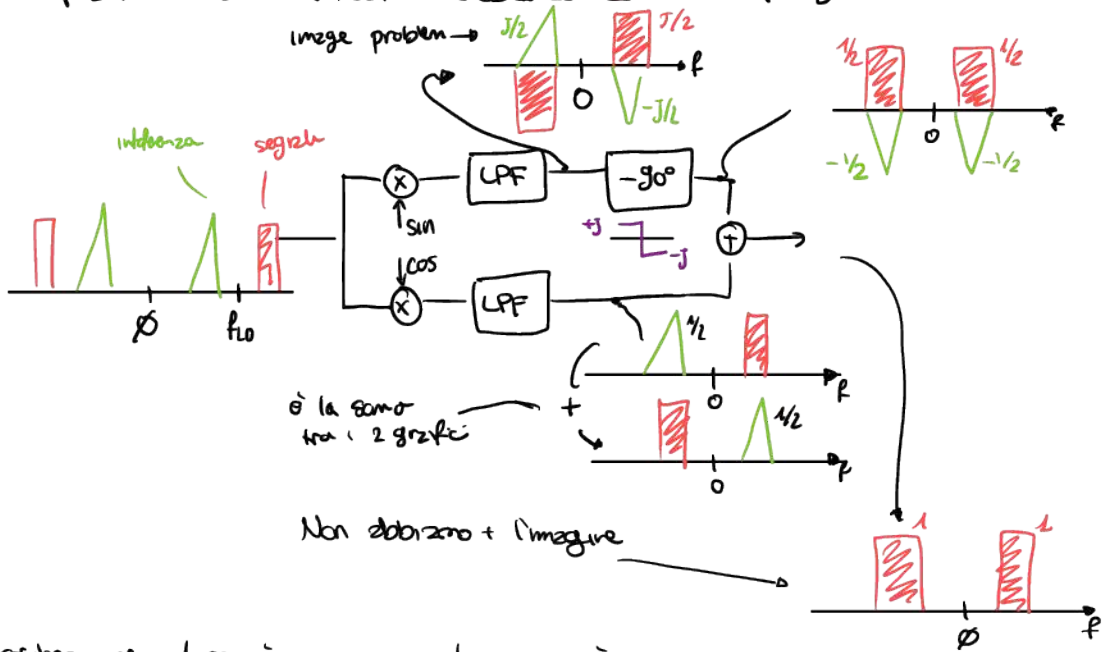 image problem →
J/2
J/2
-J/2
f
0
1/2
1/2
-1/2
-1/2
0
f
segnale
LPF
-90°
x
sin
+J
-J
+
cos
x
LPF
Ø
fLO
1/2
f
0
è la somma
+
tra i 2 grafici
1/2
f
0
Non abbiamo + l'imagine
1
1
Ø
f